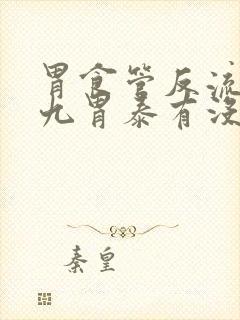 胃食管反流
九胃泰有没
秦皇